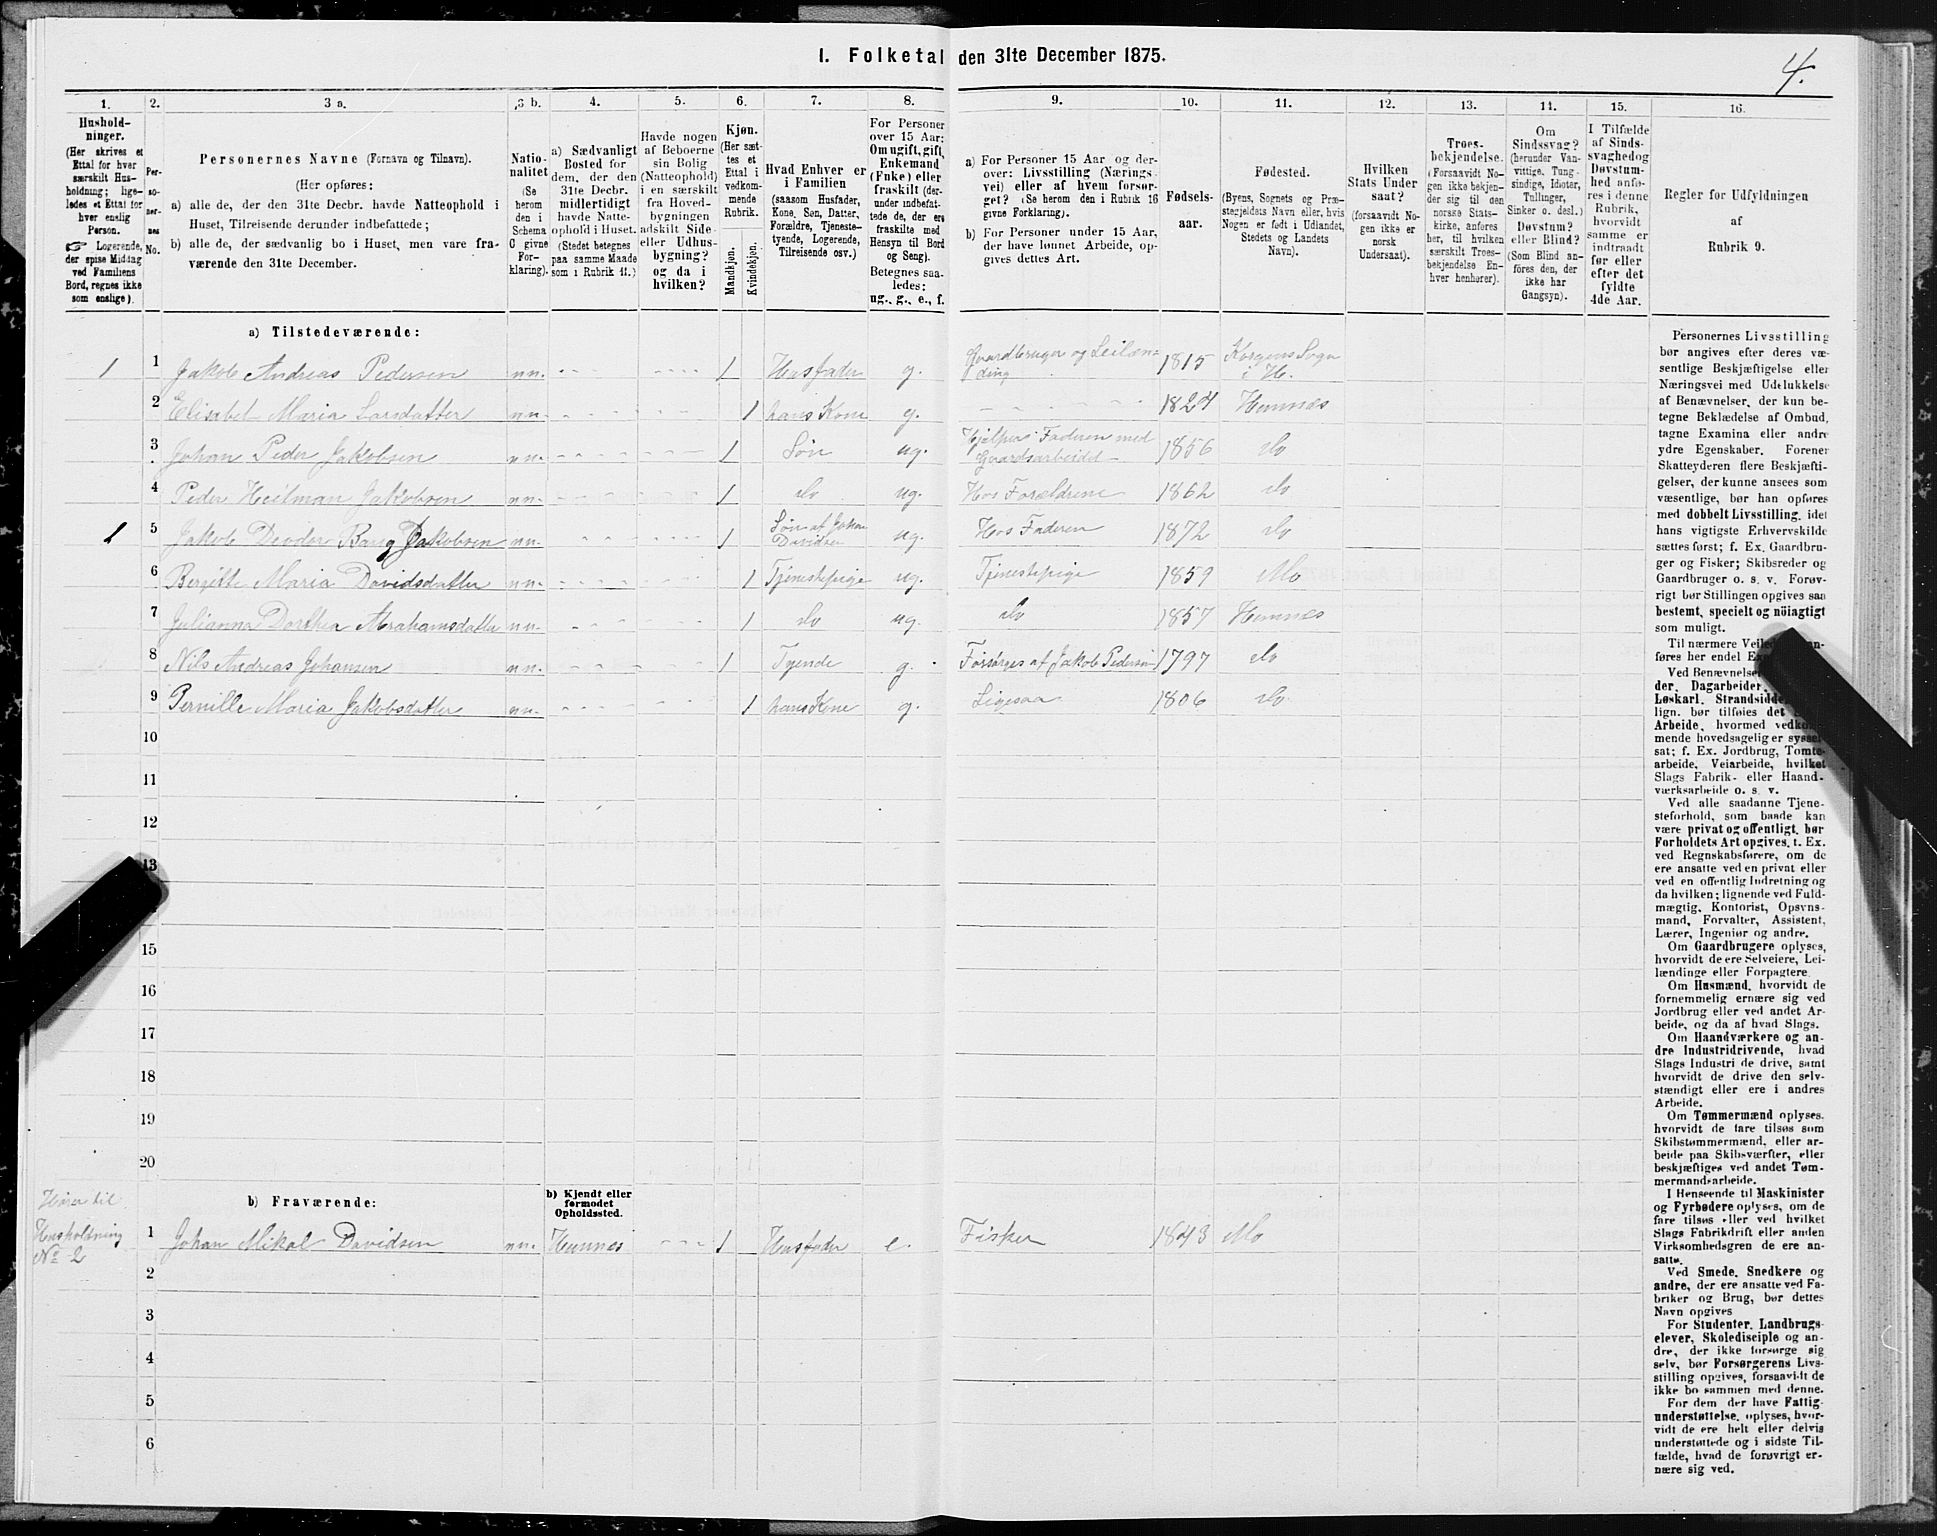 1. Folketal den 31te December 1875.
4.
1.
2.
3 a.
3 b.
4.
5.
6.
7.
8.
9.
10.
11.
12.
13.
14.
15.
16.
Hushold-
ninger.
(Her skrives et
Ettal for hver
særskilt Hus-
holdning; lige-
ledes et Ettal for
hver enslig
Person.
☞ Logerende,
der spise Middag
ved Familiens
Bord, regnes ikke
som enslige).
Per-
so-
ner-
nes
No.
Personernes Navne (Fornavn og Tilnavn).
(Her opføres:
a) alle de, der den 31te Decbr. havde Natteophold i
Huset, Tilreisende derunder indbefattede;
b) alle de, der sædvanlig bo i Huset, men vare fra-
værende den 31te December.
Natio-
nalitet
(Se
herom
den i
Schema
C givne
For-
klaring).
a) Sædvanligt
Bosted for
dem, der den
31te Decbr.
midlertidigt
havde Natte-
ophold i Huset.
(Stedet betegnes
paa samme Maade
som i Rubrik 11.)
Havde nogen
af Beboerne
sin Bolig
(Natteophold)
i en særskilt
fra Hoved-
bygningen
adskilt Side-
eller Udhus-
bygning?
og da i
hvilken?
Kjøn.
(Her sæt-
tes et
Ettal i
vedkom-
mende
Rubrik.
Mandkjøn.
Kvindekjøn.
Hvad Enhver er
i Familien
(saasom Husfader,
Kone, Søn, Datter,
Forældre, Tjeneste-
tyende, Logerende,
Tilreisende osv.)
For Personer
over 15 Aar:
Om ugift, gift,
Enkemand
(Enke) eller
fraskilt (der-
under indbefat-
tede de, der ere
fraskilte med
Hensyn til Bord
og Seng).
Betegnes saa-
ledes:
ug., g., e., f.
a) For Personer 15 Aar og der-
over: Livsstilling (Nærings-
vei) eller af hvem forsør-
get? (Se herom den i Rubrik 16
givne Forklaring).
b) For Personer under 15 Aar,
der have lønnet Arbeide, op-
gives dettes Art.
Fødsels-
aar.
Fødested.
(Byens, Sognets og Præ-
stegjeldets Navn eller, hvis
Nogen er født i Udlandet,
Stedets og Landets
Navn).
Hvilken
Stats Under-
saat?
(forsaavidt No-
gen ikke er
norsk
Undersaat).
Troes-
bekjendelse.
(Forsaavidt No-
gen ikke bekjen-
der sig til den
norske Stats-
kirke, anføres
her, til hvilken
særskilt Troes-
bekjendelse En-
hver henhører).
Om
Sindssvag?
(herunder Van-
vittige, Tung-
sindige, Idioter,
Tullinger,
Sinker o. desl.)
Døvstum?
eller Blind?
(Som Blind an-
føres den, der
ikke har
Gangsyn).
I Tilfælde
af Sinds-
svaghed og
Døvstum-
hed anfø-
res i denne
Rubrik,
hvorvidt
samme er
indtraadt
før eller
efter det
fyldte
4de Aar.
Regler for Udfyldningen
af
Rubrik 9.
a) Tilstedeværende:
1 1 Jakob Andreas Pedersen nn. 1 Husfader g. Gaardbruger og Leilæn-
ding 1815 Korgens Sogn
i H.
2 Elisabet Maria Larsdatter nn. 1 hans Kone g. 1827 Hemnæs
3 Johan Peder Jakobsen nn. 1 Søn ug. Hjelper Faderen med
Gaardsarbeidet 1856 do
4 Peder Heitman Jakobsen nn. 1 do ug. Hos Forældrene 1862 do
1 5 Jakob Deodor Bang Jakobsen nn. 1 Søn af Johan
Davidsen ug. Hos Faderen 1872 do
6 Bergitte Maria Davidsdatter nn. 1 Tjenestepige ug. Tjenestepige 1859 Mo
7 Julianna Dorthea Abrahamsdatter nn. 1 do ug. do 1857 Hemnes
8 Nils Andreas Johansen nn. 1 Tyende g. Forsørges af Jakob Pedersen 1797 do
9 Pernille Maria Jakobsdatter nn. 1 hans Kone g. Ligesaa 1806 do
10
11
12
13
15
16
17
18
19
20
Hører til
Husholdning
No 2
b) Fraværende:
b) Kjendt eller
formodet
Opholdssted.
1 Johan Mikal Davidsen nn. Hemnes 1 Husfader e. Fisker 1843 Mo
2
3
4
5
6
Personernes Livsstilling
bør angives efter deres væ-
sentlige Beskjæftigelse eller
Næringsvei med Udelukkelse
af Benævnelser, der kun be-
tegne Beklædelse af Ombud,
tagne Examina eller andre
ydre Egenskaber. Forener
Skatteyderen flere Beskjæfti-
gelser, der kunne ansees som
væsentlige, bør han opføres
med dobbelt Livsstilling, idet
hans vigtigste Erhvervskilde
sættes først; f. Ex. Gaardbru-
ger og Fisker; Skibsreder og
Gaardbruger o. s. v. Forøv-
rigt bør Stillingen opgives saa
bestemt, specielt og nöiagtigt
som muligt.
Til nærmere
føres her endel
Ved
der, Dagarbeider,
Løskarl, Strandsidde
lign. bør tilføies det
Arbeide, hvormed
mende hovedsagelig er
sat; f. Ex. Jordbrug, Tomte-
arbeide, Veiarbeide, hvilket
Slags Fabrik- eller Haand-
værksarbeide o. s. v.
Ved alle saadanne Tjene-
steforhold, som baade kan
være privat og offentligt, bør
Forholdets Art opgives, f. Ex.
ved Regnskabsførere, om de
ere ansatte ved en privat eller
ved en offentlig Indretning og
da hvilken; lignende ved Fuld-
mægtig, Kontorist, Opsyns-
mand, Forvalter, Assistent,
Lærer, Ingeniør og andre.
Om Gaardbrugere oplyses,
hvorvidt de ere Selveiere, Lei-
lændinge eller Forpagtere
Om Husmænd, hvorvidt de
fornemmelig ernære sig ved
Jordbrug eller ved andet Ar-
beide, og da af hvad Slags.
Om Haandværkere og an-
dre Industridrivende, hvad
Slags Industri de drive, samt
hvorvidt de drive den selv-
stændigt eller ere i andres
Arbeide.
Om Tømmermænd oplyses,
hvorvidt de fare tilsøs som
Skibstømmermænd, eller ar-
beide paa Skibsværfter, eller
beskjæftiges ved andet Tøm-
mermandsarbeide.
I Henseende til Maskinister
og Fyrbødere oplyses, om de
fare tilsøs eller ved hvilket
Slags Fabrikdrift eller anden
Virksomhedsgren de ere an-
satte.
Ved Smede, Snedkere og
andre, der ere ansatte ved Fa-
briker og Brug, bør dettes
Navn opgives
For Studenter, Landbrugs-
elever, Skoledisciple og an-
dre, der ikke forsørge sig
selv, bør Forsørgerens Livs-
stilling opgives, forsaavidt de
ikke bo sammen med denne.
For dem der have Fattig-
understøttelse, oplyses, hvor-
vidt de ere helt eller delvis
understøttede og i sidste Til-
fælde, hvad de forøvrigt er-
nære sig ved.